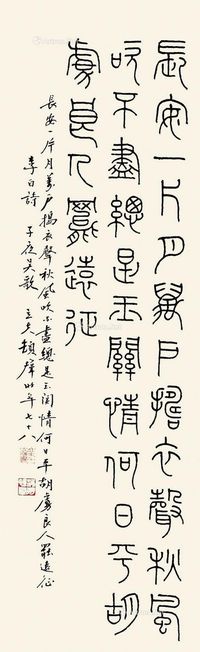 長安一片月萬戶擣衣聲秋風
吹不盡總是玉關情何日平胡
虜良人罷遠征
長安一片月萬戶擣衣聲秋風吹不盡總是玉關情何日平胡虜良人罷遠征
李白詩 子夜吳歌